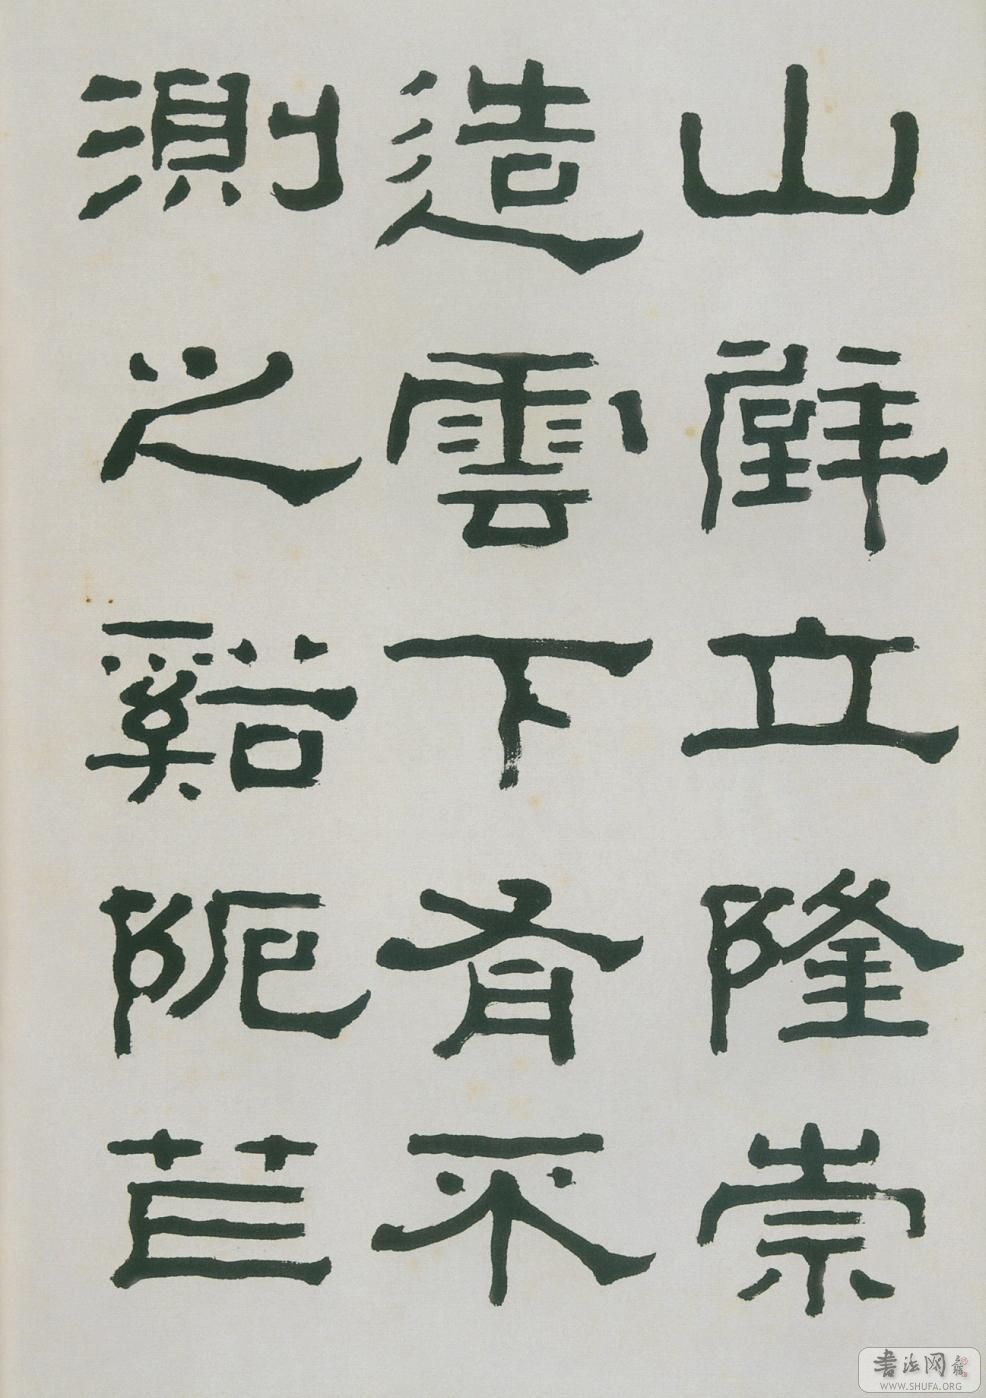 山壁立隆崇
造雲下有不
測之谿阨芒
書法网
WWW.SHUFA.ORG